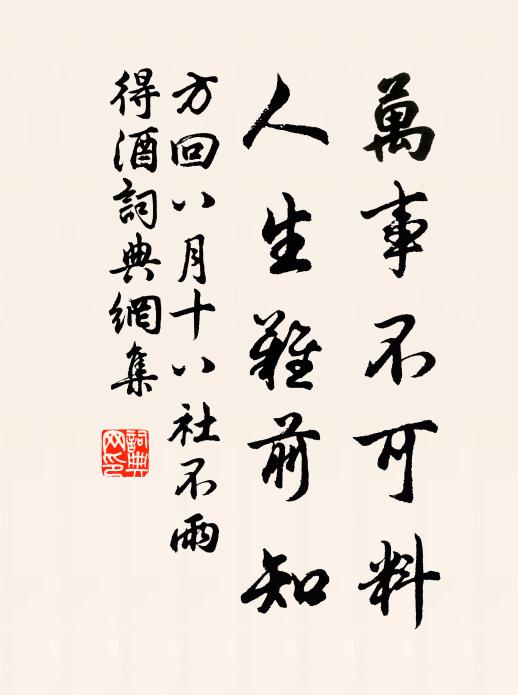 萬事不可料
人生難前知
方回八月十八社不雨
得酒詞典網集
詞典
网印